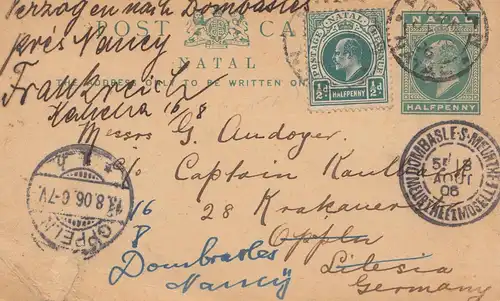 Verzogen nach Dombasles
près Nancy
Frankreich
POST CARD
NATAL
THE ADDRESS ONLY TO BE WRITTEN ON
POSTAGE NATAL REVENUE
½d ½d
HALFPENNY
NATAL
HALFPENNY
16/8
Messrs G. Andoyer.
c/o Captain Kaulbach
28 Krakauer
Oppeln
Silesia
Germany
16
8
Dombasles
Nancy
OPPELN
13.8.06.6-7V.
DOMBASLE-S-MEURTHE
18
AOUT
06
MEURTHE ET MOSELLE